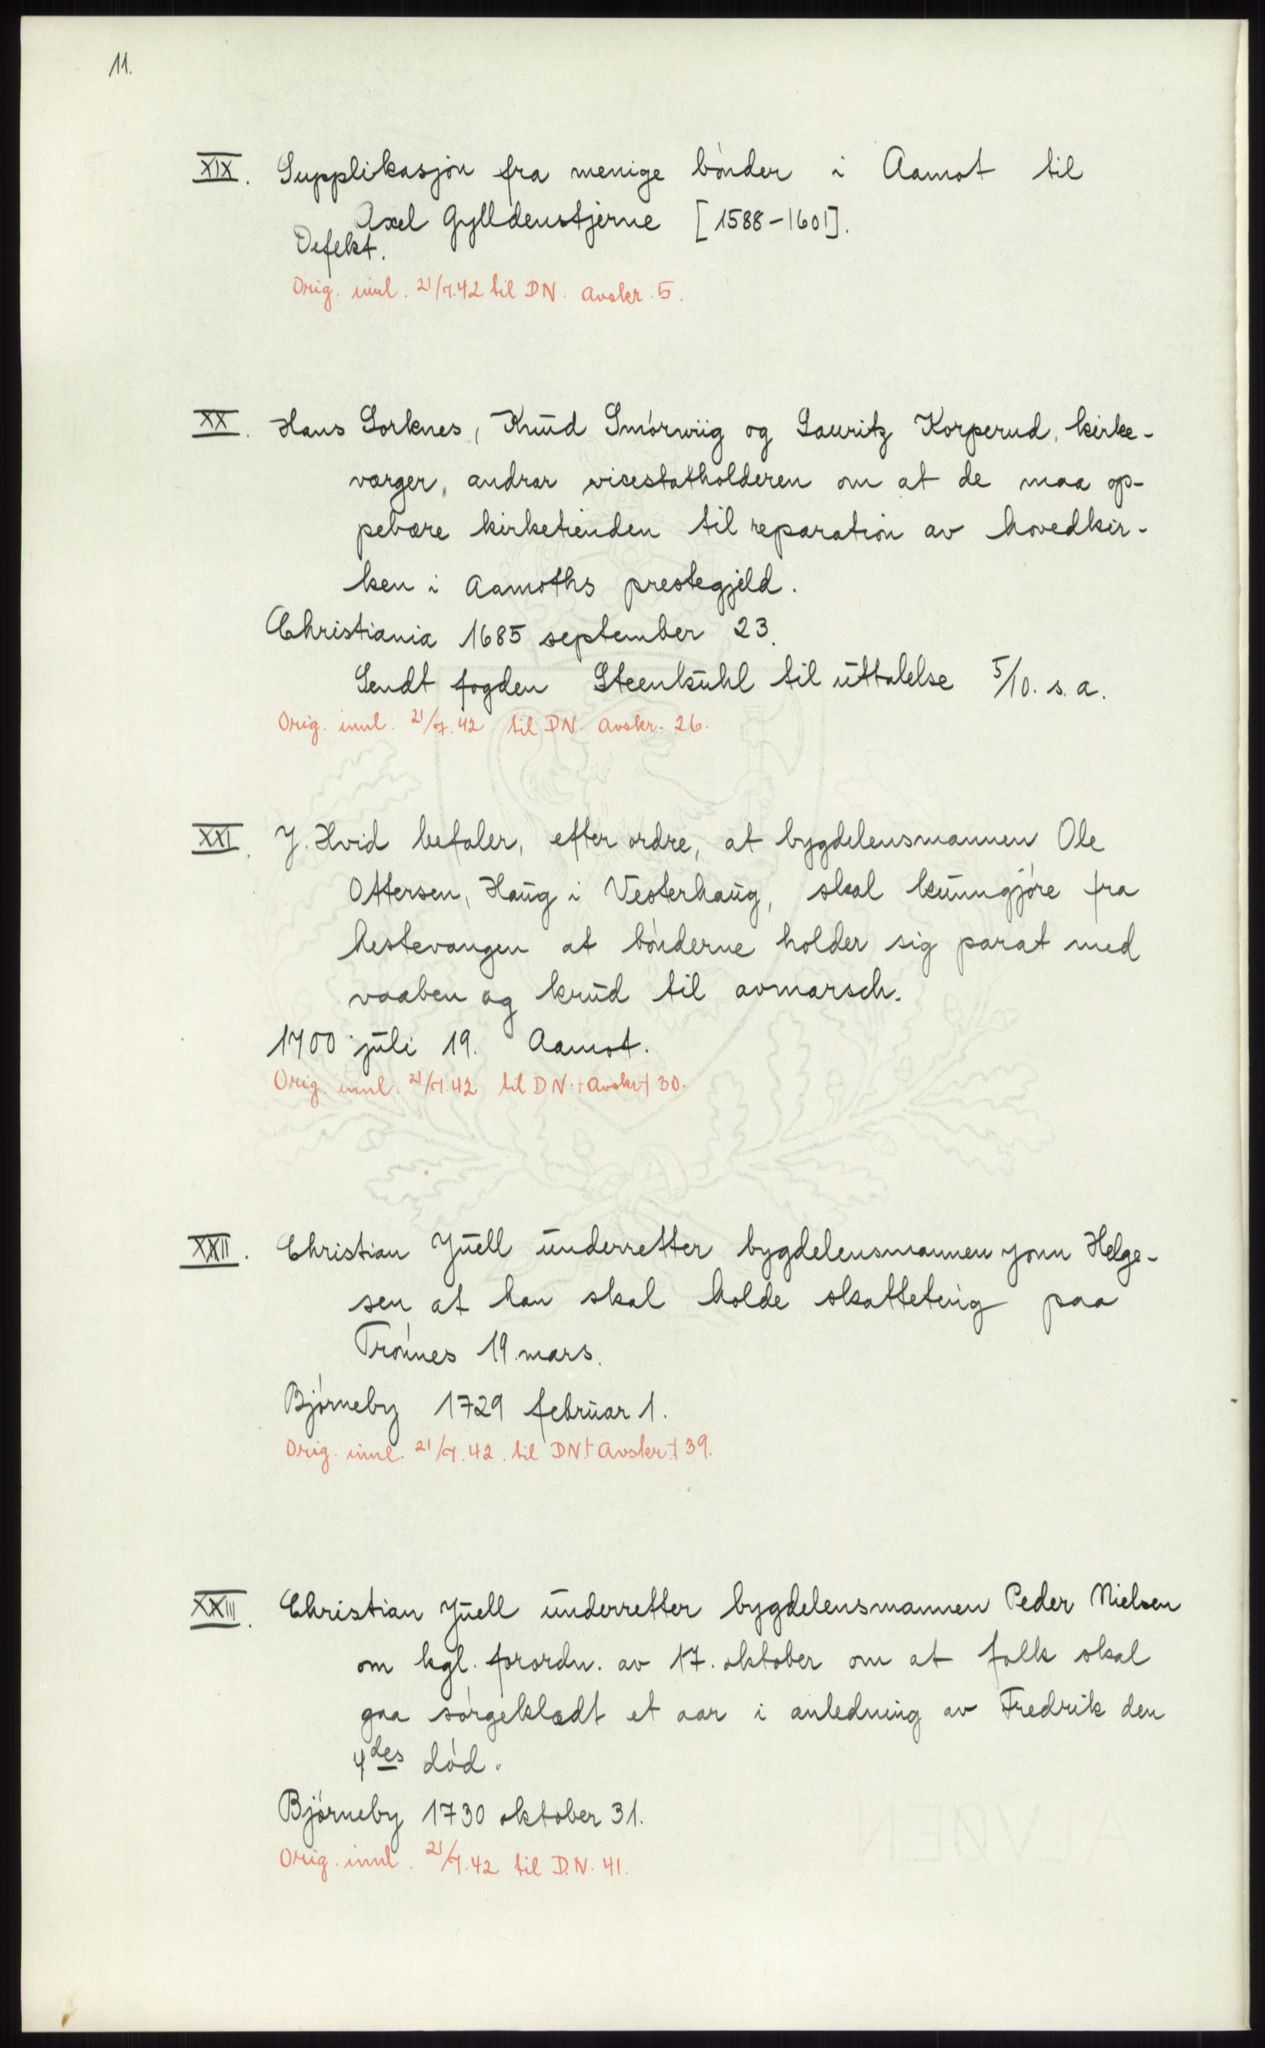 11.
XIX. Supplikasjon fra menige bønder i Aamot til
Axel Gylldenstjerne [1588-1601].
Defekt.
Orig. innl. 21/7.42 til DN. Avskr. 5.
XX. Hans Sorknes, Knud Smörwiig og Lauritz Korperud, kirke-
værger, andrar vicestatholderen om at de maa op-
pebære kirketienden til reparation av hovedkir-
ken i Aamoths prestegjeld.
Christiania 1685 september 23.
Sendt fogden Steenkuhl til uttalelse 5/10. s. a.
Orig. innl. 21/7.42 til DN. Avskr. 26.
XXI. J. Hvid befaler, efter ordre, at bygdelensmannen Ole
Ottersen, Haug i Vesterhaug, skal kunngjøre fra
hestevangen at bønderne holder sig parat med
vaaben og krud til avmarsch.
1700 juli 19. Aamot.
Orig. innl. 21/7.42 til DN. + Avskr. + 30.
XXII. Christian Juell underretter bygdelensmannen Jonn Helge-
sen at han skal holde skatteting paa
Trønnes 19. mars.
Bjørneby 1729 februar 1.
Orig. innl. 21/7.42. til DN. + Avskr. + 39.
XXIII. Christian Juell underretter bygdelensmannen Peder Nielsen
om kgl. forordn. av 17. oktober om at folk skal
gaa sørgeklædt et aar i anledning av Fredrik den
4des død.
Bjørneby 1730 oktober 31.
Orig. innl. 21/7.42 til D.N. 41.